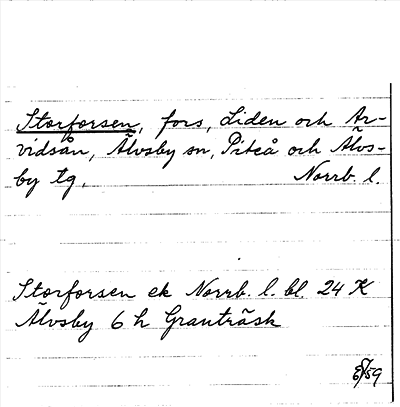 Storforsen, fors, Liden och Ar-
vidsån, Älvsby sn, Piteå och Älvs-
by tg. Norrb. l.
Storforsen ek Norrb. l. bl. 24 K
Älvsby 6 h Granträsk
/59